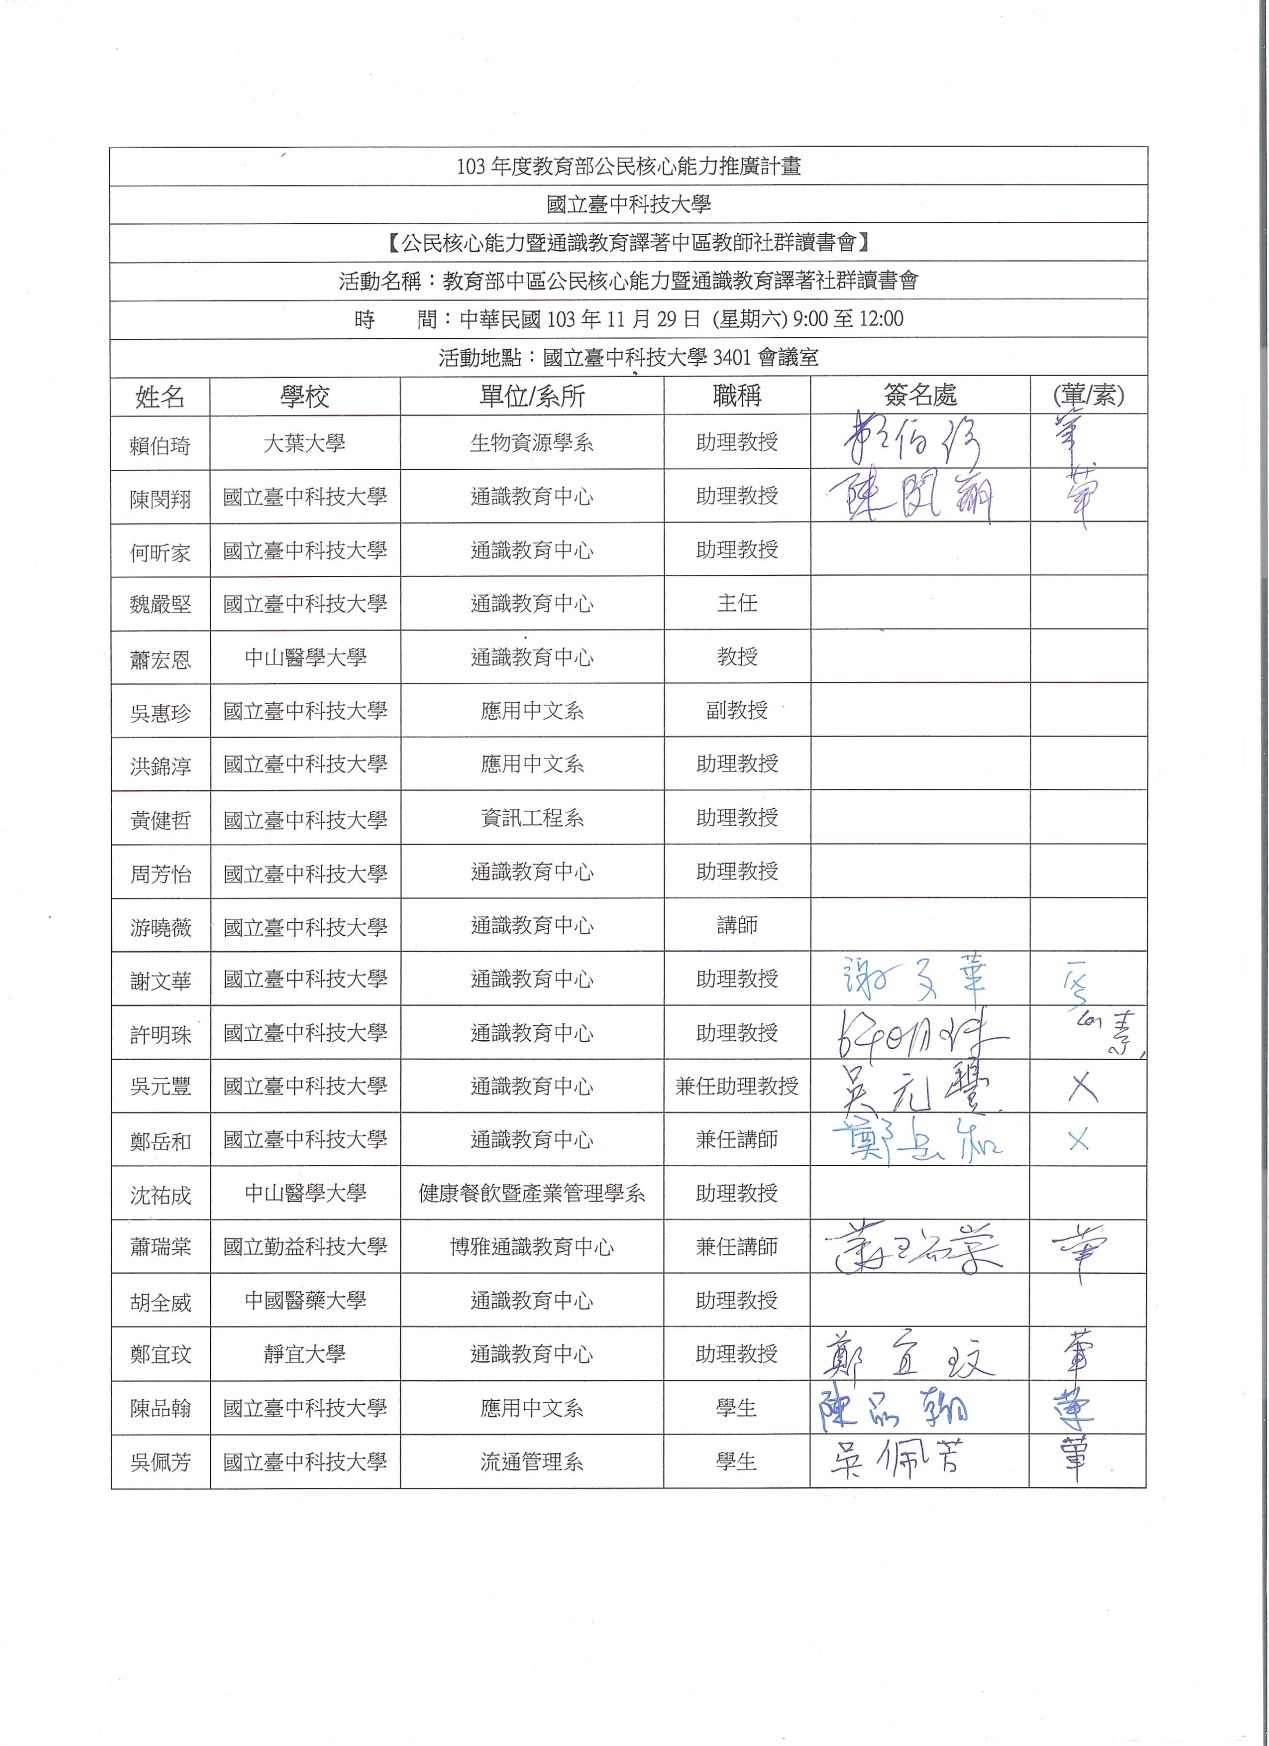 103 年度教育部公民核心能力推廣計畫
國立臺中科技大學
【公民核心能力暨通識教育譯著中區教師社群讀書會】
活動名稱：教育部中區公民核心能力暨通識教育譯著社群讀書會
時　　間：中華民國 103 年 11 月 29 日 (星期六) 9:00 至 12:00
活動地點：國立臺中科技大學 3401 會議室
姓名 學校 單位/系所 職稱 簽名處 (葷/素)
賴伯琦 大葉大學 生物資源學系 助理教授 賴伯琦 葷
陳閔翔 國立臺中科技大學 通識教育中心 助理教授 陳閔翔 葷
何昕家 國立臺中科技大學 通識教育中心 助理教授
魏嚴堅 國立臺中科技大學 通識教育中心 主任
蕭宏恩 中山醫學大學 通識教育中心 教授
吳惠珍 國立臺中科技大學 應用中文系 副教授
洪錦淳 國立臺中科技大學 應用中文系 助理教授
黃健哲 國立臺中科技大學 資訊工程系 助理教授
周芳怡 國立臺中科技大學 通識教育中心 助理教授
游曉薇 國立臺中科技大學 通識教育中心 講師
謝文華 國立臺中科技大學 通識教育中心 助理教授 謝文華
許明珠 國立臺中科技大學 通識教育中心 助理教授 許明珠 素
吳元豐 國立臺中科技大學 通識教育中心 兼任助理教授 吳元豐 X
鄭岳和 國立臺中科技大學 通識教育中心 兼任講師 鄭岳和 X
沈祐成 中山醫學大學 健康餐飲暨產業管理學系 助理教授
蕭瑞棠 國立勤益科技大學 博雅通識教育中心 兼任講師 蕭瑞棠 葷
胡全威 中國醫藥大學 通識教育中心 助理教授
鄭宜玟 靜宜大學 通識教育中心 助理教授 鄭宜玟 葷
陳品翰 國立臺中科技大學 應用中文系 學生 陳品翰 葷
吳佩芳 國立臺中科技大學 流通管理系 學生 吳佩芳 葷